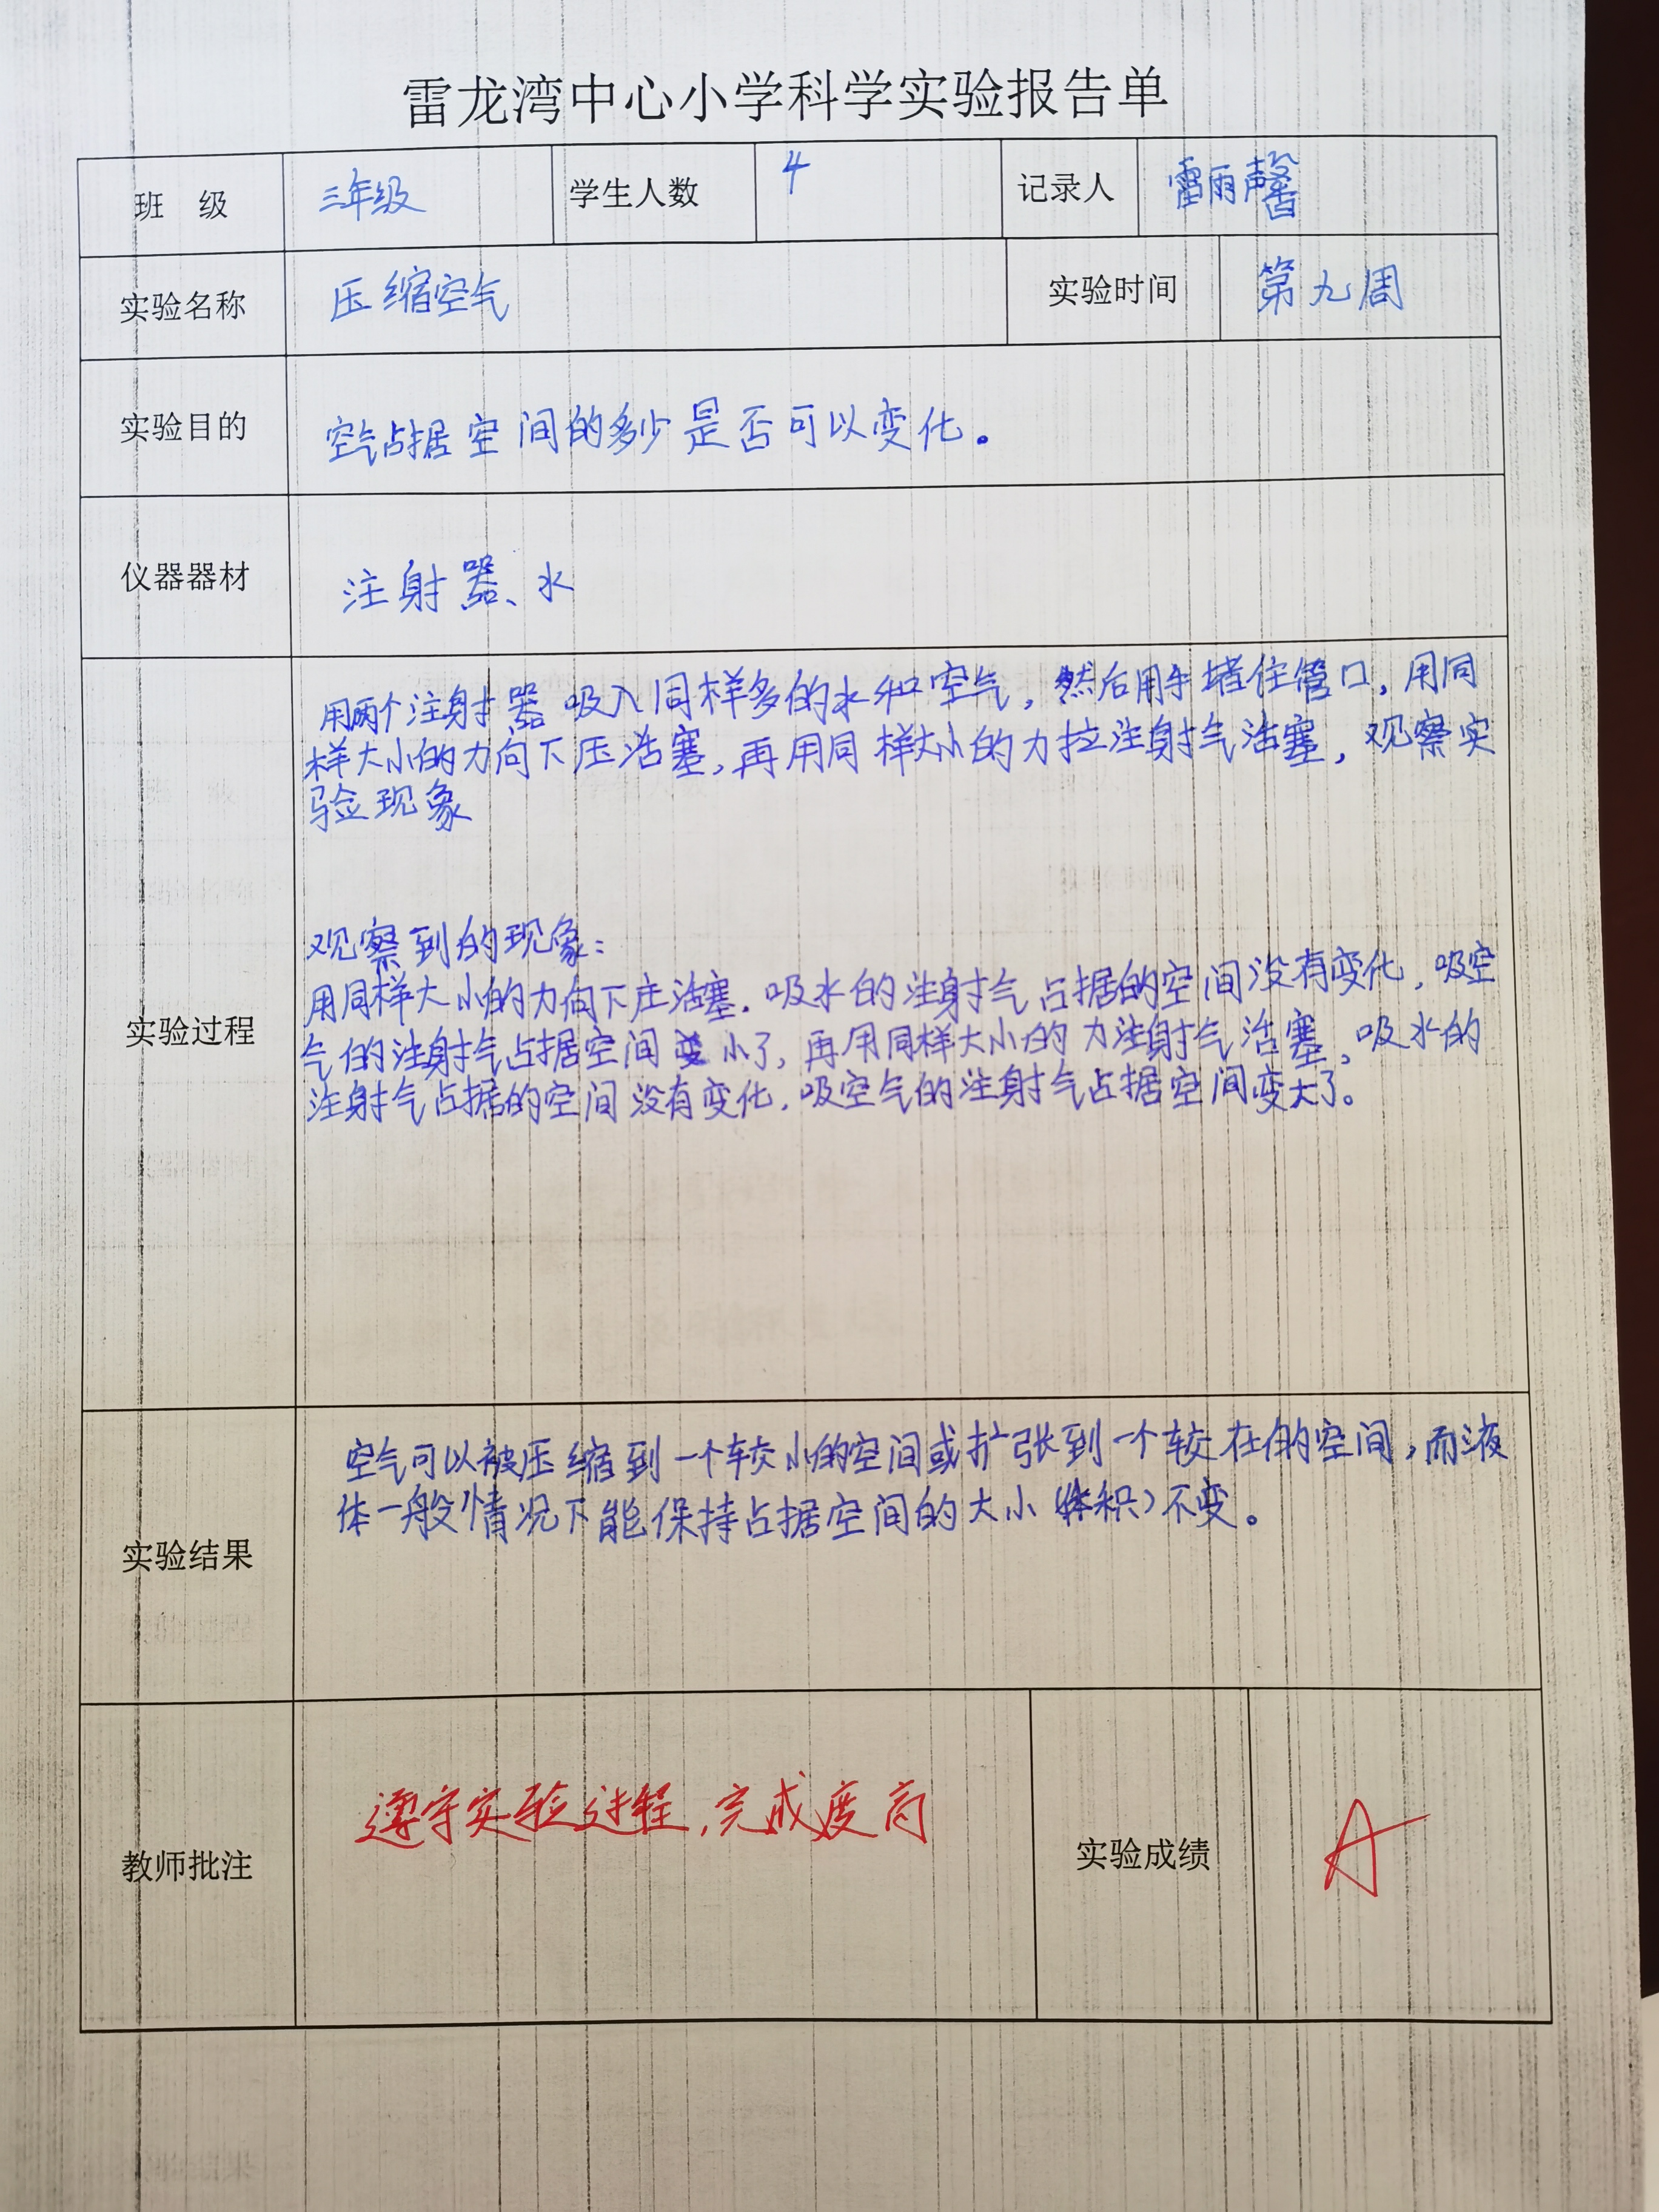 雷龙湾中心小学科学实验报告单
班 级 三年级 学生人数 4 记录人 雷雨馨
实验名称 压缩空气 实验时间 第九周
实验目的 空气占据空间的多少是否可以变化。
仪器器材 注射器、水
用两个注射器吸入同样多的水和空气，然后用手堵住管口，用同
样大小的力向下压活塞，再用同样大小的力拉注射气活塞，观察实
验现象
观察到的现象：
用同样大小的力向下压活塞，吸水的注射气占据的空间没有变化，吸空
气的注射气占据空间变小了，再用同样大小的力注射气活塞，吸水的
实验过程
注射气占据的空间没有变化，吸空气的注射气占据空间变大了。
空气可以被压缩到一个较小的空间或扩张到一个较在的空间，而液
体一般情况下能保持占据空间的大小（体积）不变。
实验结果
教师批注 遵守实验过程，完成度高 实验成绩 A